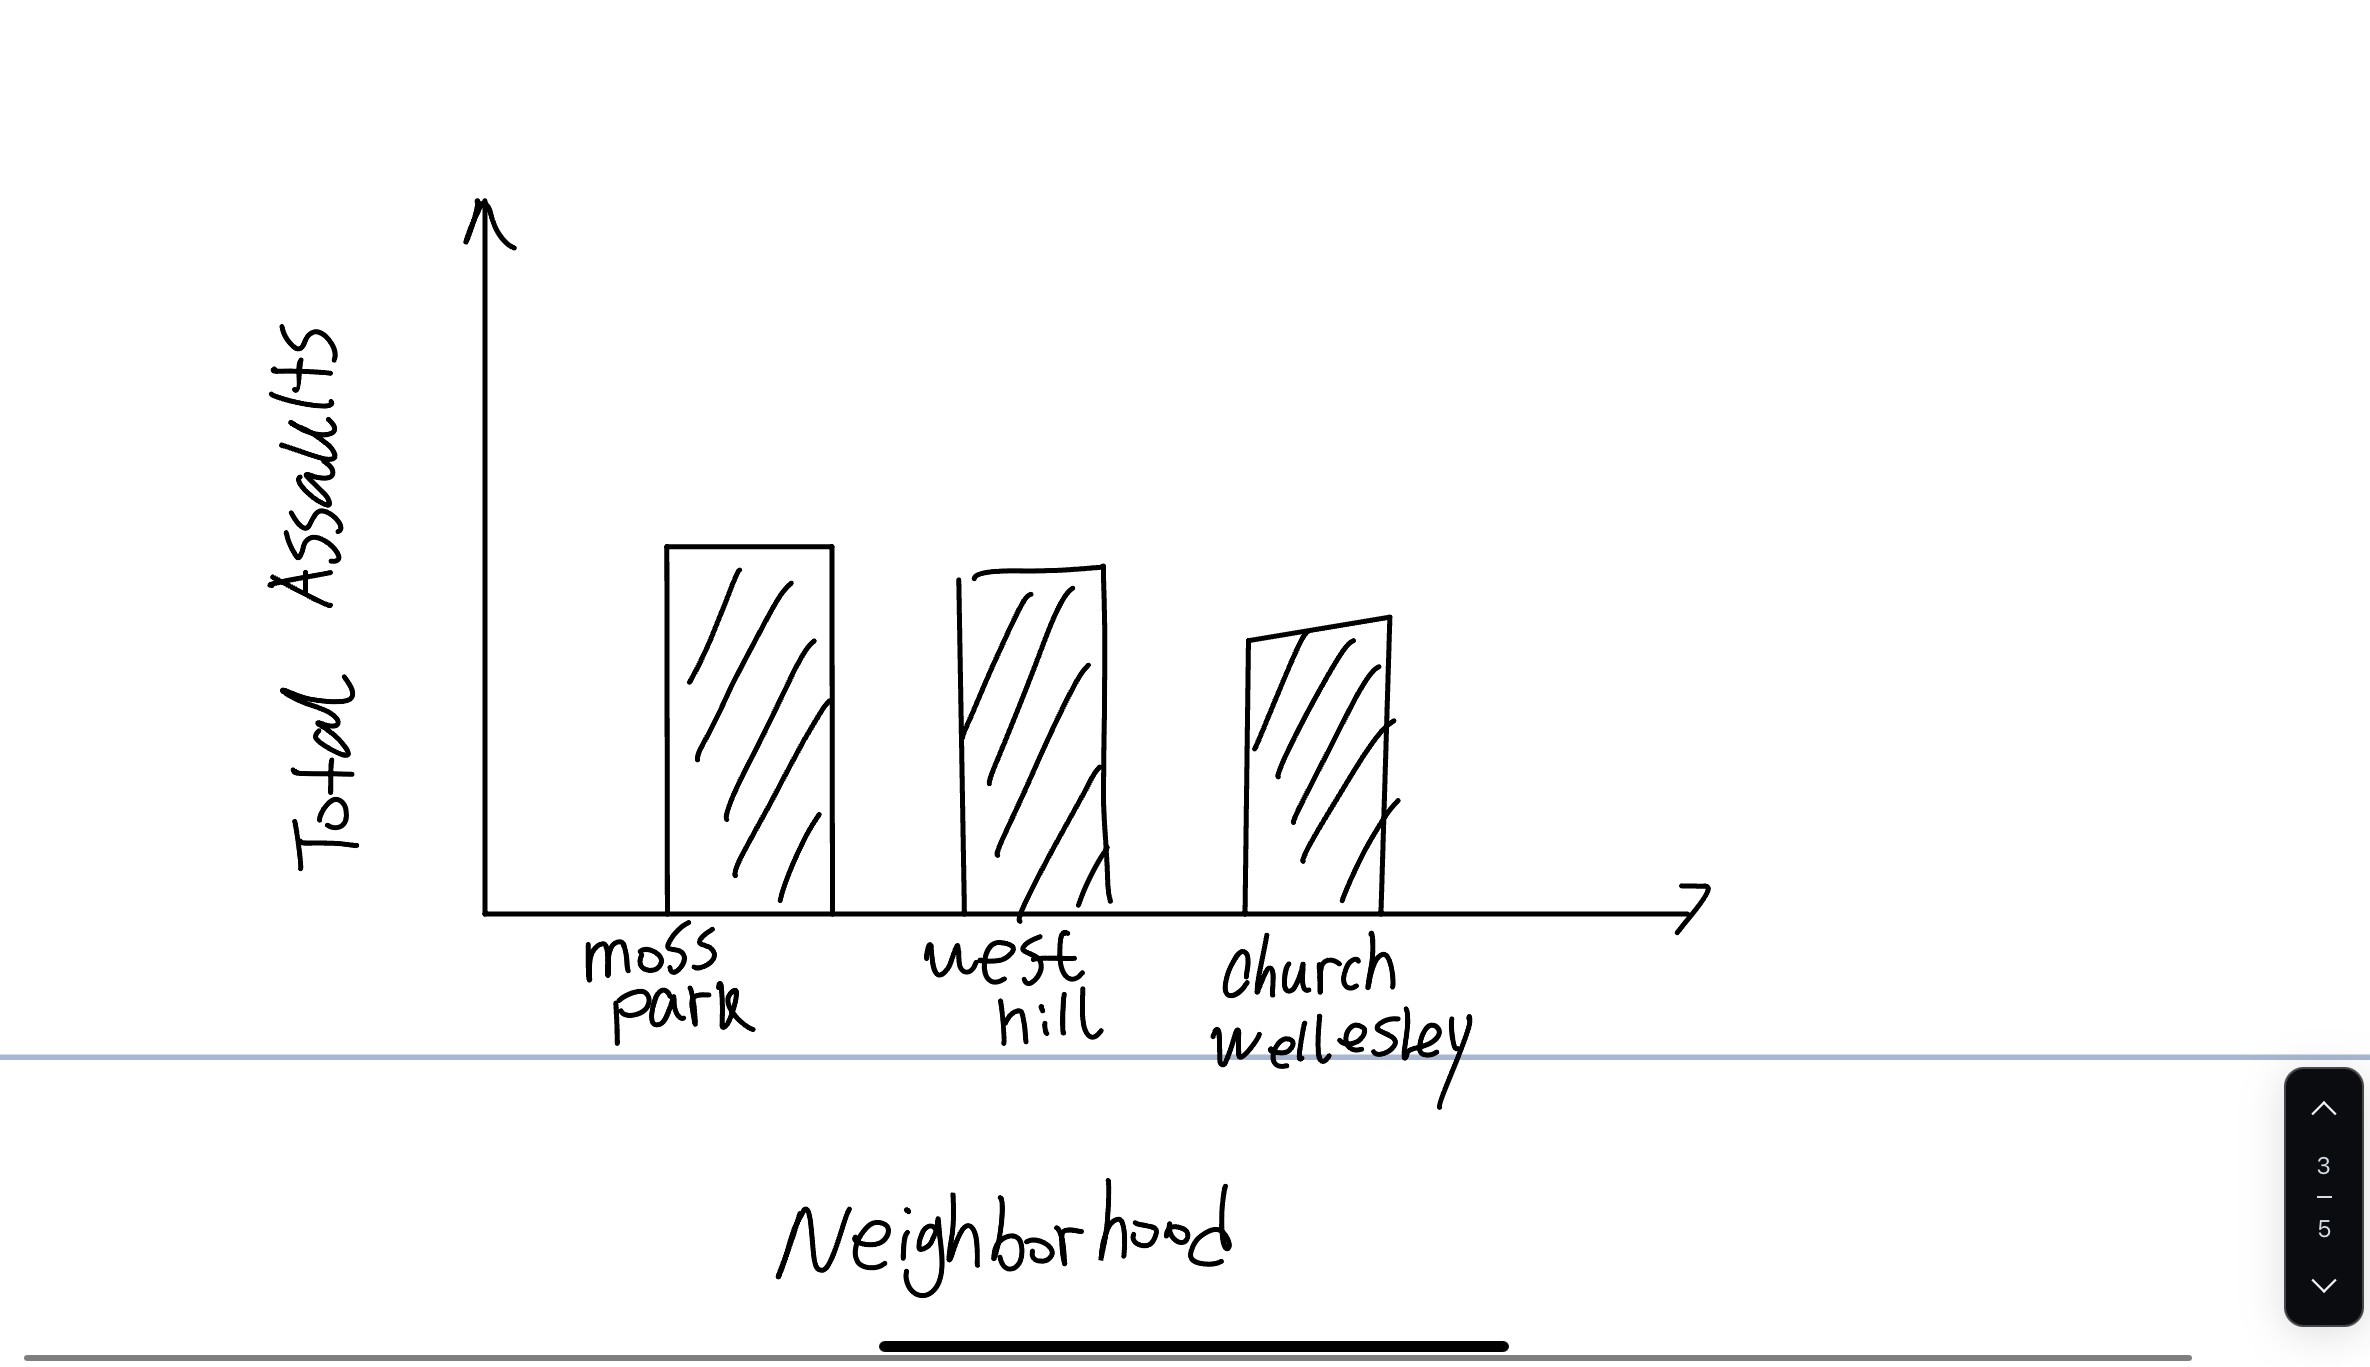 Total Assaults
moss
park
west
hill
church
wellesley
Neighborhood
3
5